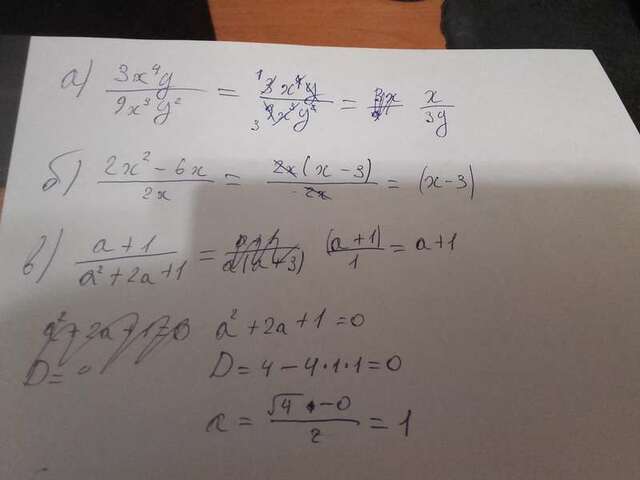 а) 3x⁴y / 9x³y² = ¹3x⁴y / ₃9x³y² = x / 3y
б) 2x² - 6x / 2x = 2x(x - 3) / 2x = (x-3)
в) a + 1 / a² + 2a + 1 = (a+1) / 1 = a+1
a² + 2a + 1 = 0 a² + 2a + 1 = 0
D = D = 4 - 4·1·1 = 0
x = √4 - 0 / 2 = 1